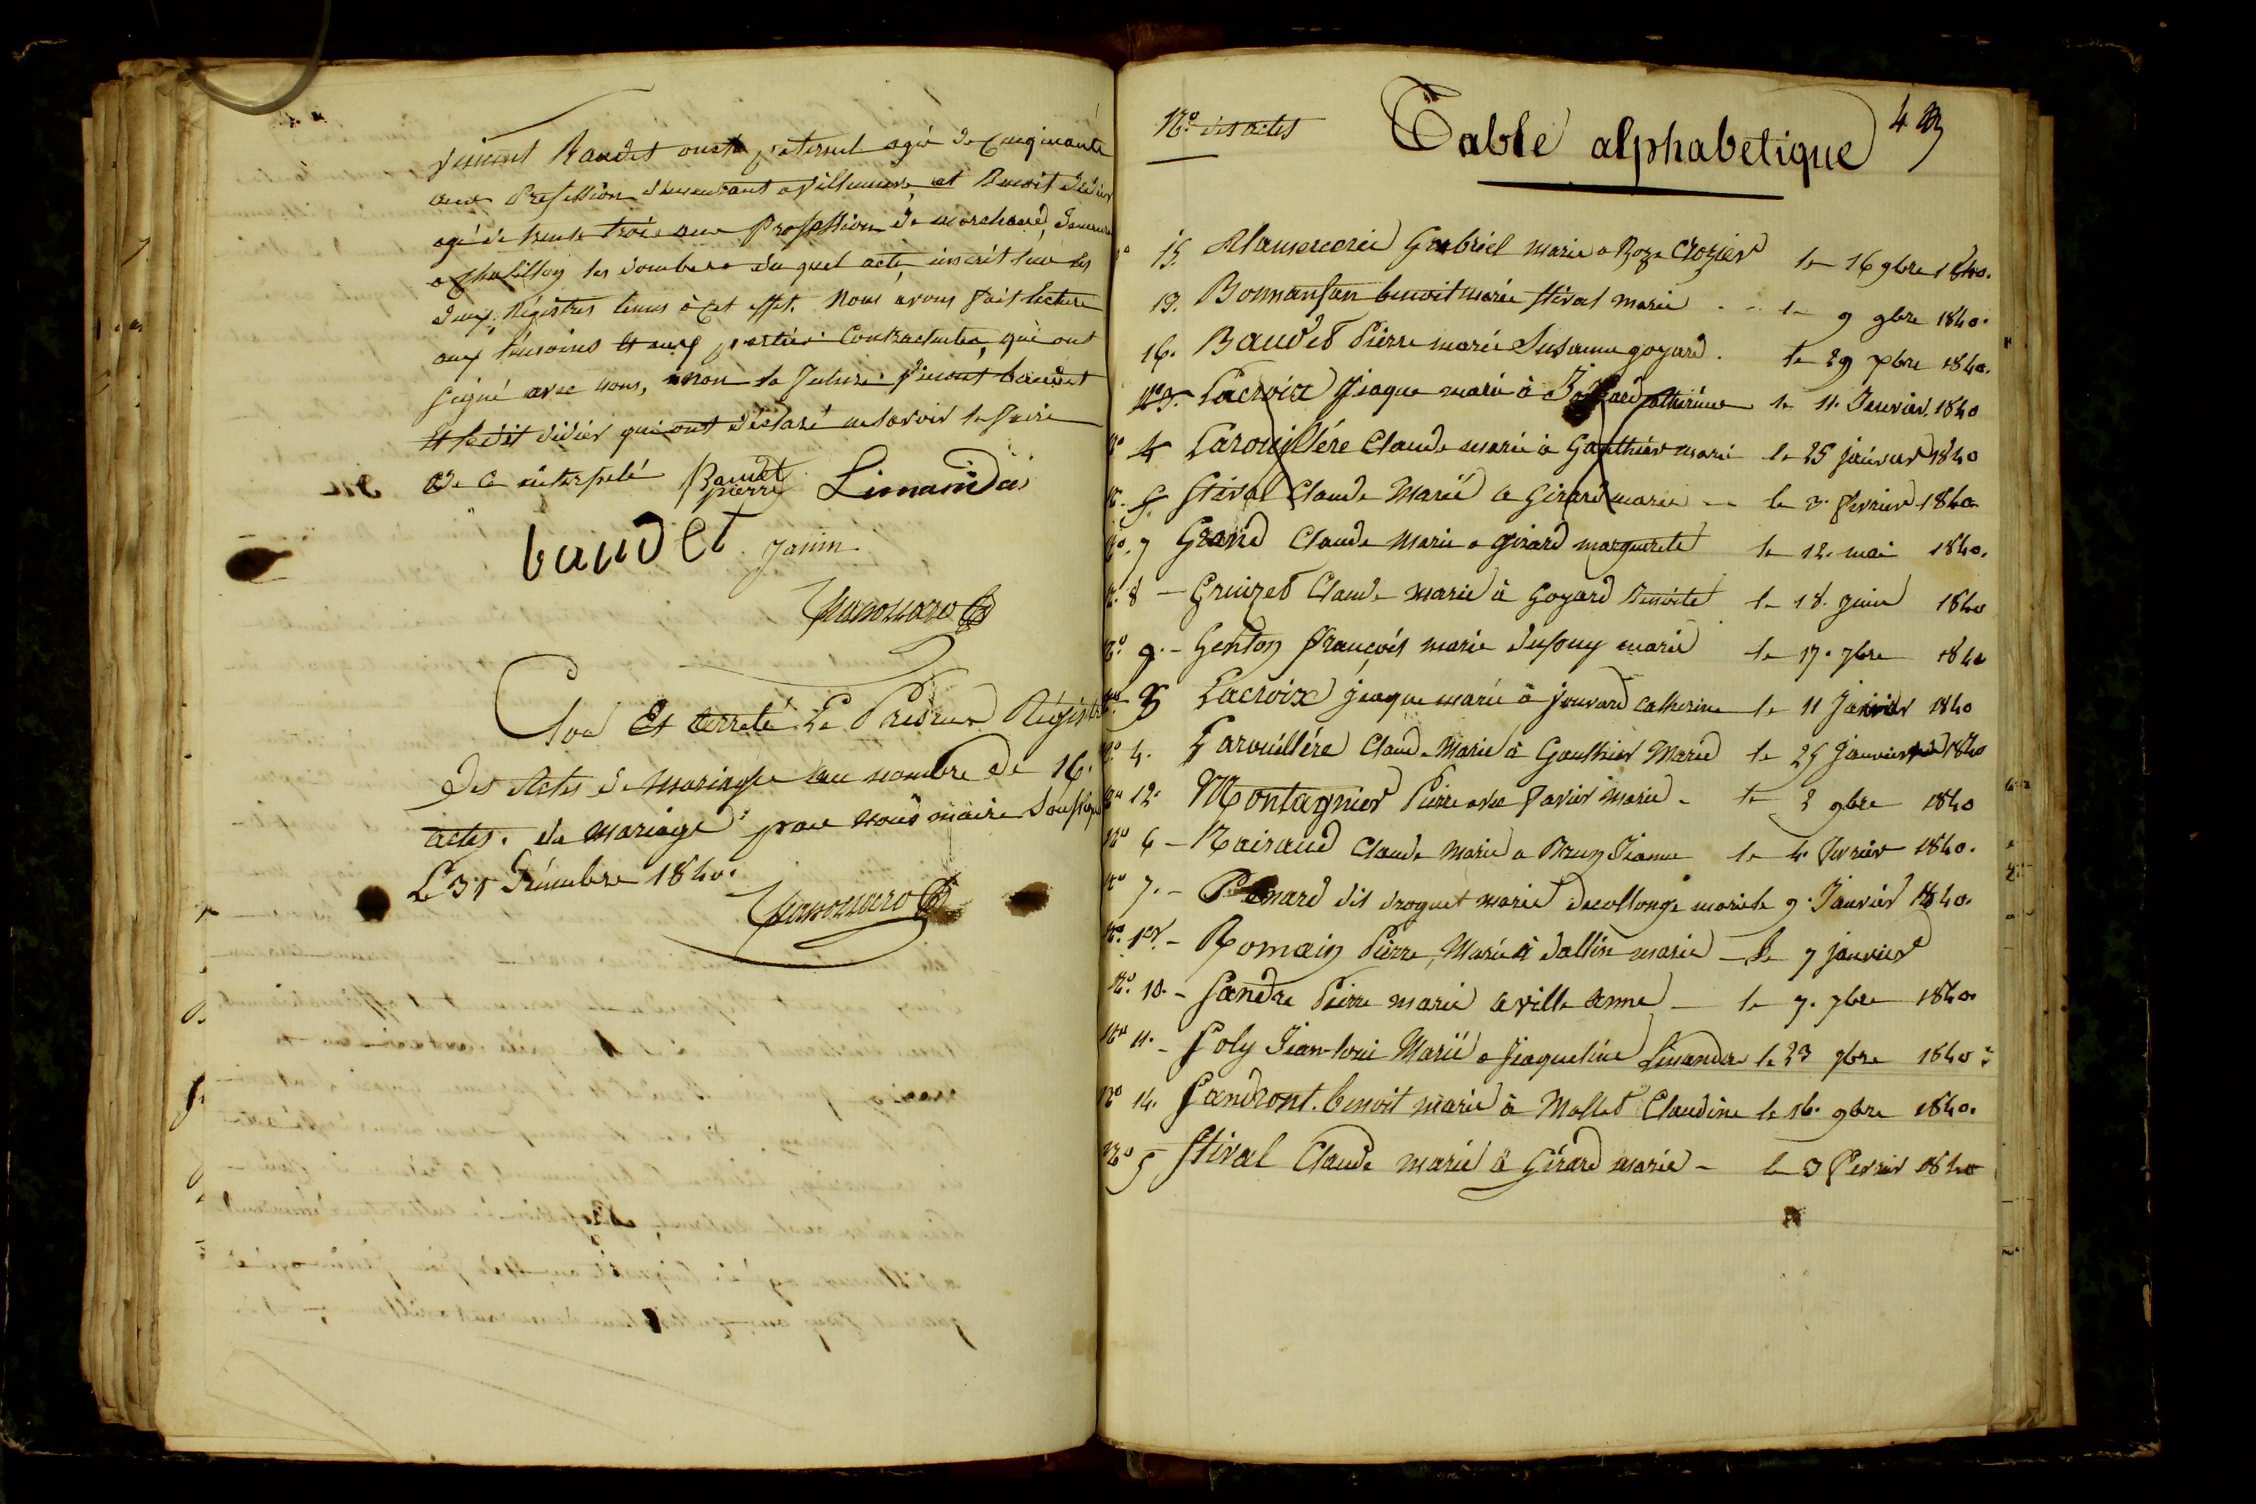 vincent Baudet oncle paternel agé de cinquante
ans Profession demeurant a villeneuve, et Benoit didier
agé de trente trois ans Profession de marchand, demeurant
a Chatillon les dombes du quel acte, inscrit sur les
deux Régistres tenus à cet effet. Nous avons fait lecture
aux temoins et aux parties Contractantes, qui ont
signé avec nous, non la future vincent baudet
et ledit didier qui ont déclaré ne savoir le faire
de ce interpelé Baudet pierre Limandas
baudet Janin
Clos et arreté Le Présent Régistre
Des Actes de Mariage au nombre de 16.
actes. de Mariage par nous maire Soussigné
Le 31 Décembre 1840.
No. des actes Table alphabetique 43
15. Alamercerie Gabriel marié a Roze Crozier le 16 9bre 1840.
13. Bonmansan benoit marié Stival marie le 9 9bre 1840.
16. Baudet Pierre marié Susanne goyard. le 29 xbre 1840.
No 3. Lacroix Jiaque marié à Catherine le 11. Janvier 1840
No 4 Larouillére Claude marié à Gauthier marie le 25 janvier 1840
No. 5. Stival Claude Marié a Girard marie le 3. fevrier 1840
No. 7 Grand Claude Marié a girard marguerite le 12. mai 1840.
No. 8 Gruizet Claude marié à Goyard Benoite le 18. juin 1840
No. 9. Genton François marié dufouy marie le 17. 7bre 1840
No 3 Lacroix jiaque marié à jouvard Catherine le 11 Janvier 1840
No 4. Larouillére Claude Marié à Gauthier Marie le 25 Janvier 1840
No 12. Montagnier Pierre avec favier marie le 2 9bre 1840
No 6 Nairaud Claude Marié a Brun Jeanne le 4. fevrier 1840.
No 7. dit droguet marié decollonge marie le 9. Janvier 1840.
No. 1er. Romain Pierre, Marié à dallin marie le 7 janvier
No. 10. Sandre Pierre marié a ville Anne le 7. 7bre 1840
No 11. Soly Jean-loui Marié a Jiaqueline Limandas le 23 7bre 1840
No 14. Sandront benoit marié à Mollet Claudine le 16. 9bre 1840.
No 5 Stival Claude marié à Gérard marie le 3 Fevrier 1840